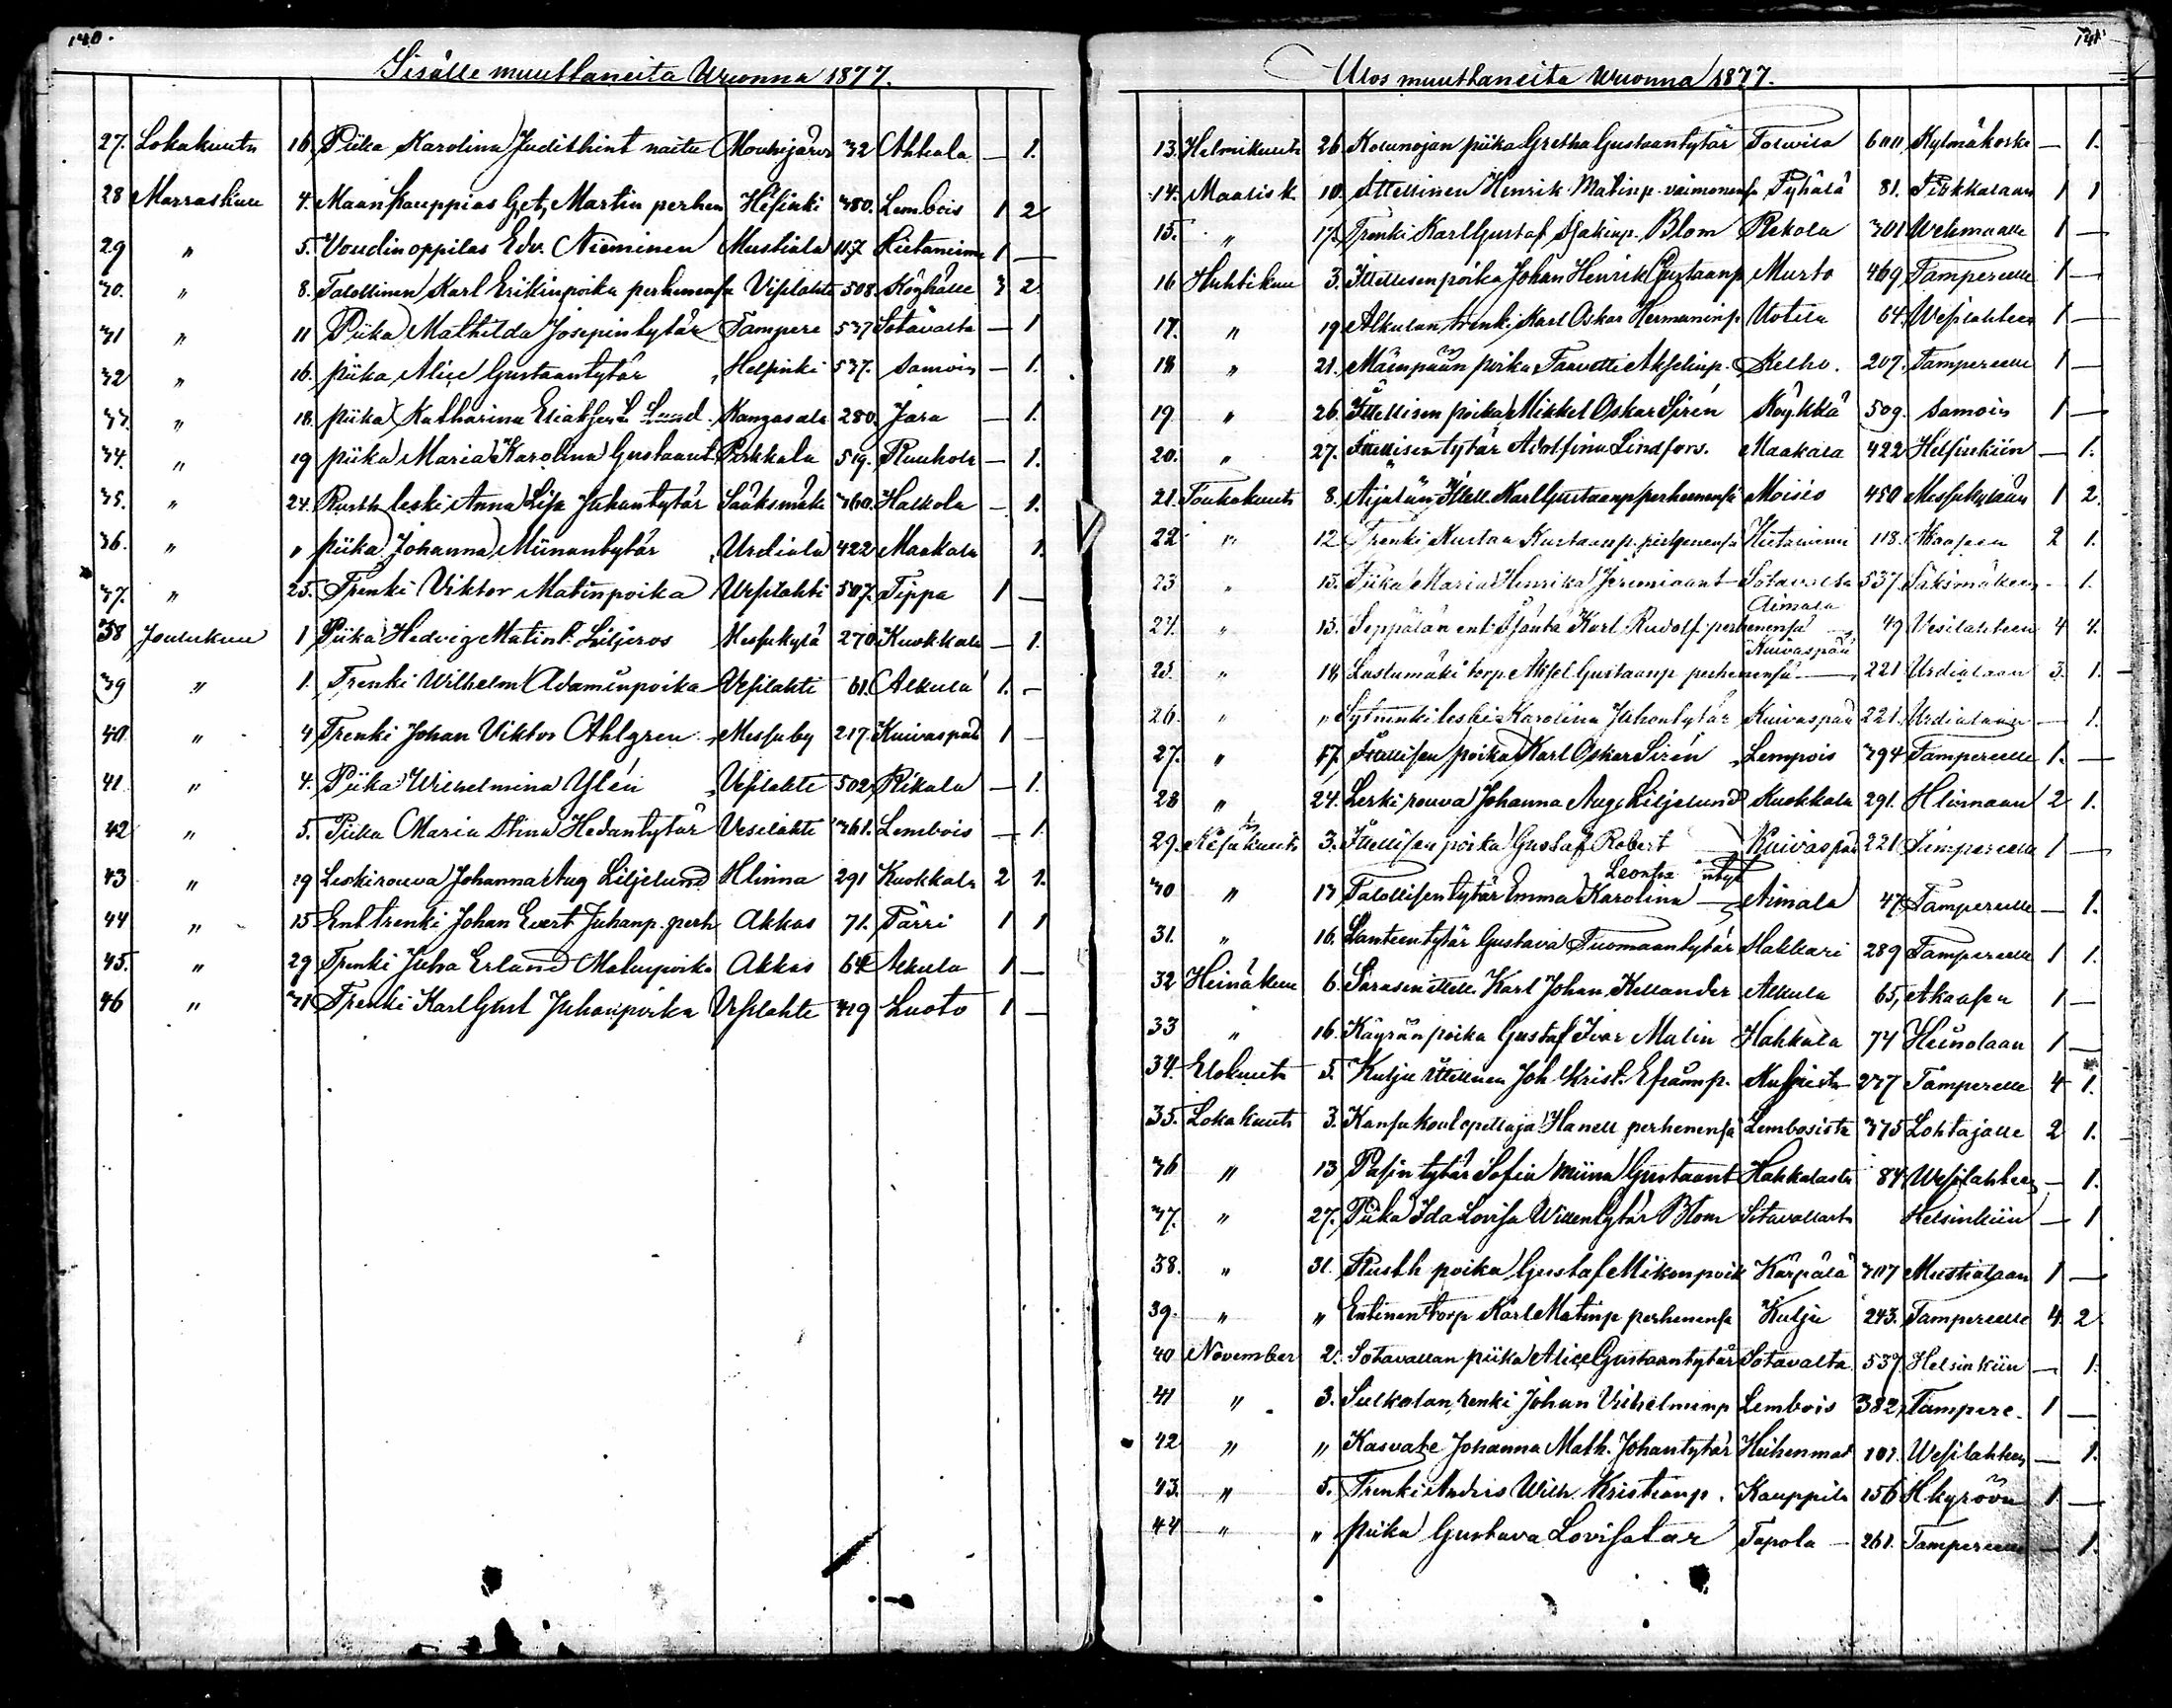 140.
Sisälle muuttaneita Vuonna 1877.
27. Lokakuuta 16. Piika Karolina Judithint naitu Mouhijärvi 32 Ahtiala — 1.
28 Marraskuu 4. Maankauppias Get, Martin perhen Helsinki 380. Lembois 1 2
29 " 5. Voudinoppilas Edv. Nieminen Mustiala 117 Hietaniemi 1 —
30. " 8. Talollinen Karl Erikinpoika perhenensa Vesilahti 508. 3 2
31 " 11 Piika Mathilda Josepintytär Tampere 537 Sotavalta — 1
32 " 16. piika Alice Gustaantytär Helsinki 537. samoin — 1.
33. " 18. piika Katharina Lund Kangasala 280. Jara — 1.
34. " 19 piika Maria Karolina Gustaant Pirkkala 519. Ruuhola — 1.
35. " 24. Rusth leski Anna Lisa Juhantytär Sääksmäki 360. Halkola — 1.
36. " " piika Johanna Miinantytär Urdiala 422 Maakala 1.
37. " 25. Trenki Viktor Matinpoika Vesilahti 507. Tippa 1 —
38 Joulukuu 1 Piika Hedvig Matint. Liljeros Messukylä 270 Kuokkala — 1.
39 " 1. Trenki Wilhelm Adaminpoika Vesilahti 61. Alkula 1. —
40 " 4 Trenki Johan Viktor Ahlgren Messuby 217. Kuivaspää 1 —
41 " 4. Piika Wilhelmina Ylén Vesilahti 502 Rikala — 1.
42 " 5. Piika Maria Stina Hedantytär Vesilahti 361. Lembois — 1.
43 " 19 Leskirouva Johanna Aug Liljelund Hlinna 291 Kuokkala 2 1.
44 " 15 Ent trenki Johan Evert Juhanp. perh Akkas 71. Pärri 1 1
45. " 29 Trenki Juha Erland Akkas 64 Alkula 1 —
46 " 31 Trenki Karl Gust Juhanpoika Vesilahti 419 Luoto 1 —
141
Ulos muuttaneita vuonna 1877.
13. Helmikuuta 26. piika Gretha Gustaantytär Tolvila 600 Kylmäkoske — 1.
14. Maalisk. 10. Ittellinen Henrik Matinp. vaimonensa Pyhälä 81. Pirkkalaan 1 1
15. " 17. Trenki Karl Gustaf Isakinp. Blom Rekola 301 Wehmaalle 1 —
16 Huhtikuu 3. Ittellisenpoika Johan Henrik Gustaanp Murto 469 Tampereelle 1 —
17. " 19. Alkulan trenki Karl Oskar Hermaninp. Uotila 64. Wesilahteen 1 —
18 " 21. Mäenpään poika Taavetti Akselinp. Kelho. 207. Tampereelle 1 —
19 " 26. Ittellisen poika Mikkel Oskar Sirén Köykkä 509. samoin 1 —
20. " 27. Ittellisen tytär Adolfina Lindfors. Maakala 422 Helsinkiin — 1.
21. Toukokuuta 8. Äijälän Ittell. Karl Gustaanp perheenensä Moisio 450 Messukylään 1 2.
22 " 12 Trenki Kustaa Kustaanp. perhenensä Hietaniemi 118. Akaasen 2 1.
23 " 15. Piika Maria Henrika Jeremiaant Sotavalta 537 Sääksmäkeen — 1.
Aimala
24. " 15. Seppälän ent. Isäntä Karl Rudolf perhenensä — 49 Vesilahteen 4 4.
Kuivaspää
25. " 18. Lustumäki torp. Aksel Gustaanp perhenensä — 221 Urdialaan 3. 1.
26. " " leski Karolina Juhontytär Kuivaspää 221. Urdialaan — 1.
27. " 17. Ittellisen poika Karl Oskar Sirén Lempois 394 Tampereelle 1. —
28 " 24. Leski rouva Johanna Aug. Liljelund Kuokkala 291. Hlinnaan 2 1.
29. Kesäkuuta 3. Ittellisen poika Gustaf Robert Kuivaspää 221 Tampereelle 1 —
30 " 17 Talollisen tytär Emma Karolina Aimala 47 Tampereelle — 1.
31. " 16. Lanteen tytär Gustava Tuomaantytär Hakkari 289 Tampereelle 1 1.
32 Heinäkuu 6. Sarasen ittell. Karl Johan Kellander Alkula 65, Akaasen 1 —
33 " 16. Käyrän poika Gustaf Ivar Malin Hakkala 74 Heinolaan 1 —
34. Elokuuta 5. Kulju ittellinen Joh Krist. Efraimp. 277 Tampereelle 4 1.
35. Lokakuuta 3. Kansakoul opettaja Hanell perhenensä Lembosista 375 Lohtajalle 2 1.
36 " 13 Pasin tytär Sofia Miina Gustaant Hakkalasta 84 Wesilahteen — 1.
37. " 27. Piika Ida Lovisa Willentytär Blom Sotavallasta Helsinkiin — 1
38. " 31. Rusth poika Gustaf Mikonpoik Kärpälä 307 Mustialaan 1 —
39. " " Entinen torp Karl Matinp perhenensa Kulju 243. Tampereelle 4 2
40 November 2. Sotavallan piika Alice Gustaantytär Sotavalta 537. Helsinkiin — 1.
41 " 3. Sulkolan renki Johan Vilhelminp Lembois 382, Tampere. 1 —
42 " " Kasvate Johanna Math. Johantytär 101. Wesilahteen — 1.
43. " 5. Trenki Andris Wilh. Kristianp. Kauppila 156 Hkyröön 1 —
44 " " piika Gustava Lovisatar Tapola — 261. Tampereelle — 1.